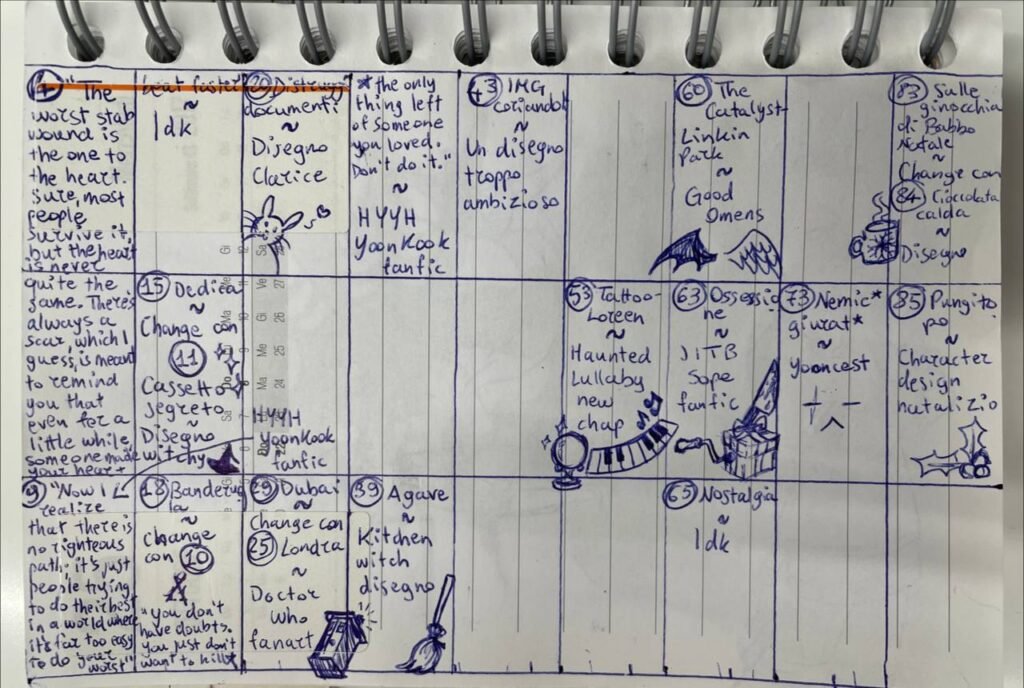 1 "The
worst stab
wound is
the one to
the heart.
Sure, most
people
survive it,
but the heart
is never
quite the
same. There's
always a
scar, which I
guess, is meant
to remind
you that
even for a
little while,
someone made
your heart
beat faster"
~
Idk
9 "Now I
realize
that there is
no righteous
path, it's just
people trying
to do their best
in a world where
it's far too easy
to do your
worst"
15 Dedica
~
Change con
11
Cassetto
segreto
~
Disegno
witchy
18 Banderuo
la
~
Change
con 10
"You don't
have doubts.
You just don't
want to kill"
20 Distruggi
documenti
~
Disegno
Clarice
HYYH
YoonKook
fanfic
29 Dubai
~
Change con
25 Londra
~
Doctor
Who
fanart
*the only
thing left
of someone
you loved.
Don't do it."
~
HYYH
YoonKook
fanfic
39 Agave
~
Kitchen
witch
disegno
43 IMG
coriandoli
~
Un disegno
troppo
ambizioso
53 Tattoo-
Loreen
~
Haunted
Lullaby
new
chap
60 The
Catalyst-
Linkin
Park
~
Good
Omens
63 Ossessio
ne
~
JITB
Sope
fanfic
65 Nostalgia
~
Idk
73 Nemic*
giurat*
~
Yooncest
83 Sulle
ginocchia
di Babbo
Natale
~
Change con
84 Cioccolata
calda
~
Disegno
85 Pungito
po
~
Character
design
natalizio